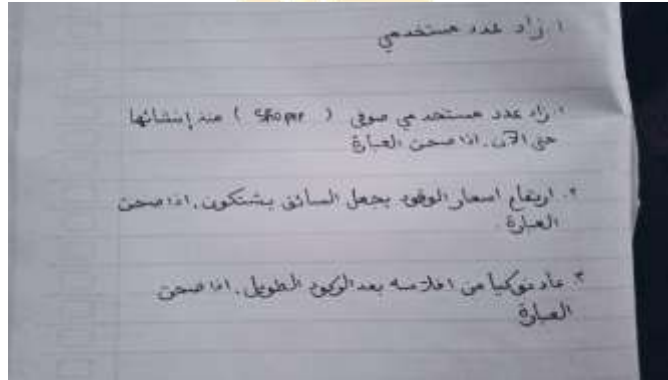 ١. زاد عدد مستخدمي
١. زاد عدد مستخدمي صوفي ( Shopee ) منذ إنشائها
حتى الآن. اذا صحت العبارة
٢. ارتفاع اسعار الوقود يجعل السائق يشتكون. اذا صحت
العبارة.
٣. عاد نوكيا من افلاسه بعد الركود الطويل. اذا صحت
العبارة